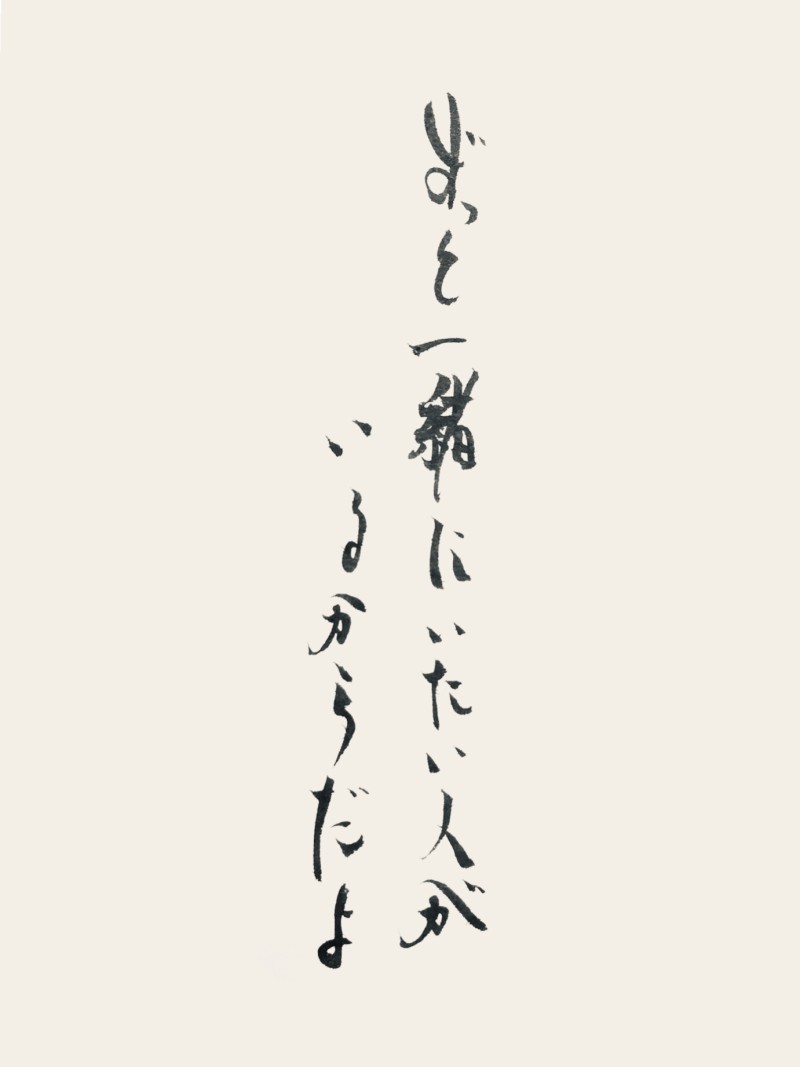 ずっと一緒にいたい人が
いるからだよ